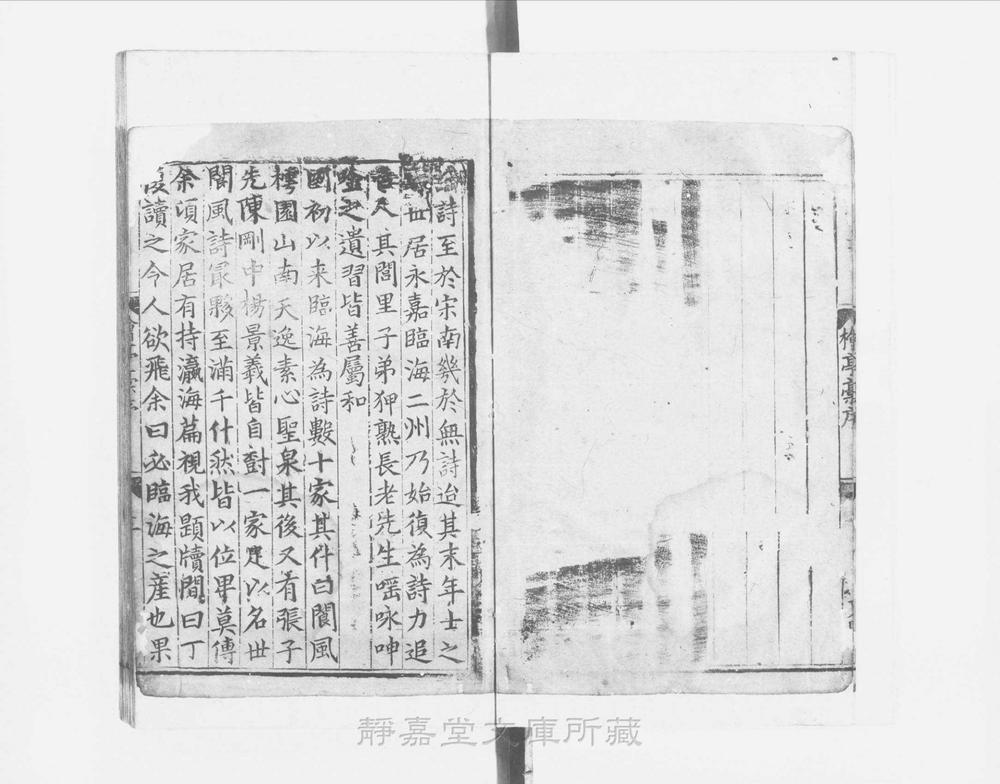 檜亭藁序
詩至於宋南幾於無詩迨其末年士之
世居永嘉臨海二州乃始復為詩力追
唐人其閭里子弟狎熟長老先生嘔咏呻
噫之遺習皆善屬和
國初以来臨海為詩數十家其什曰閬風
樗園山南天逸素心聖泉其後又有張子
先陳剛中楊景羲皆自對一家足以名世
閬風詩冣夥至滿千什然皆以位卑莫傳
余頃家居有持瀛海篇視我題牘間曰丁
復讀之今人欲飛余曰必臨海之產也果
靜嘉堂文庫所藏